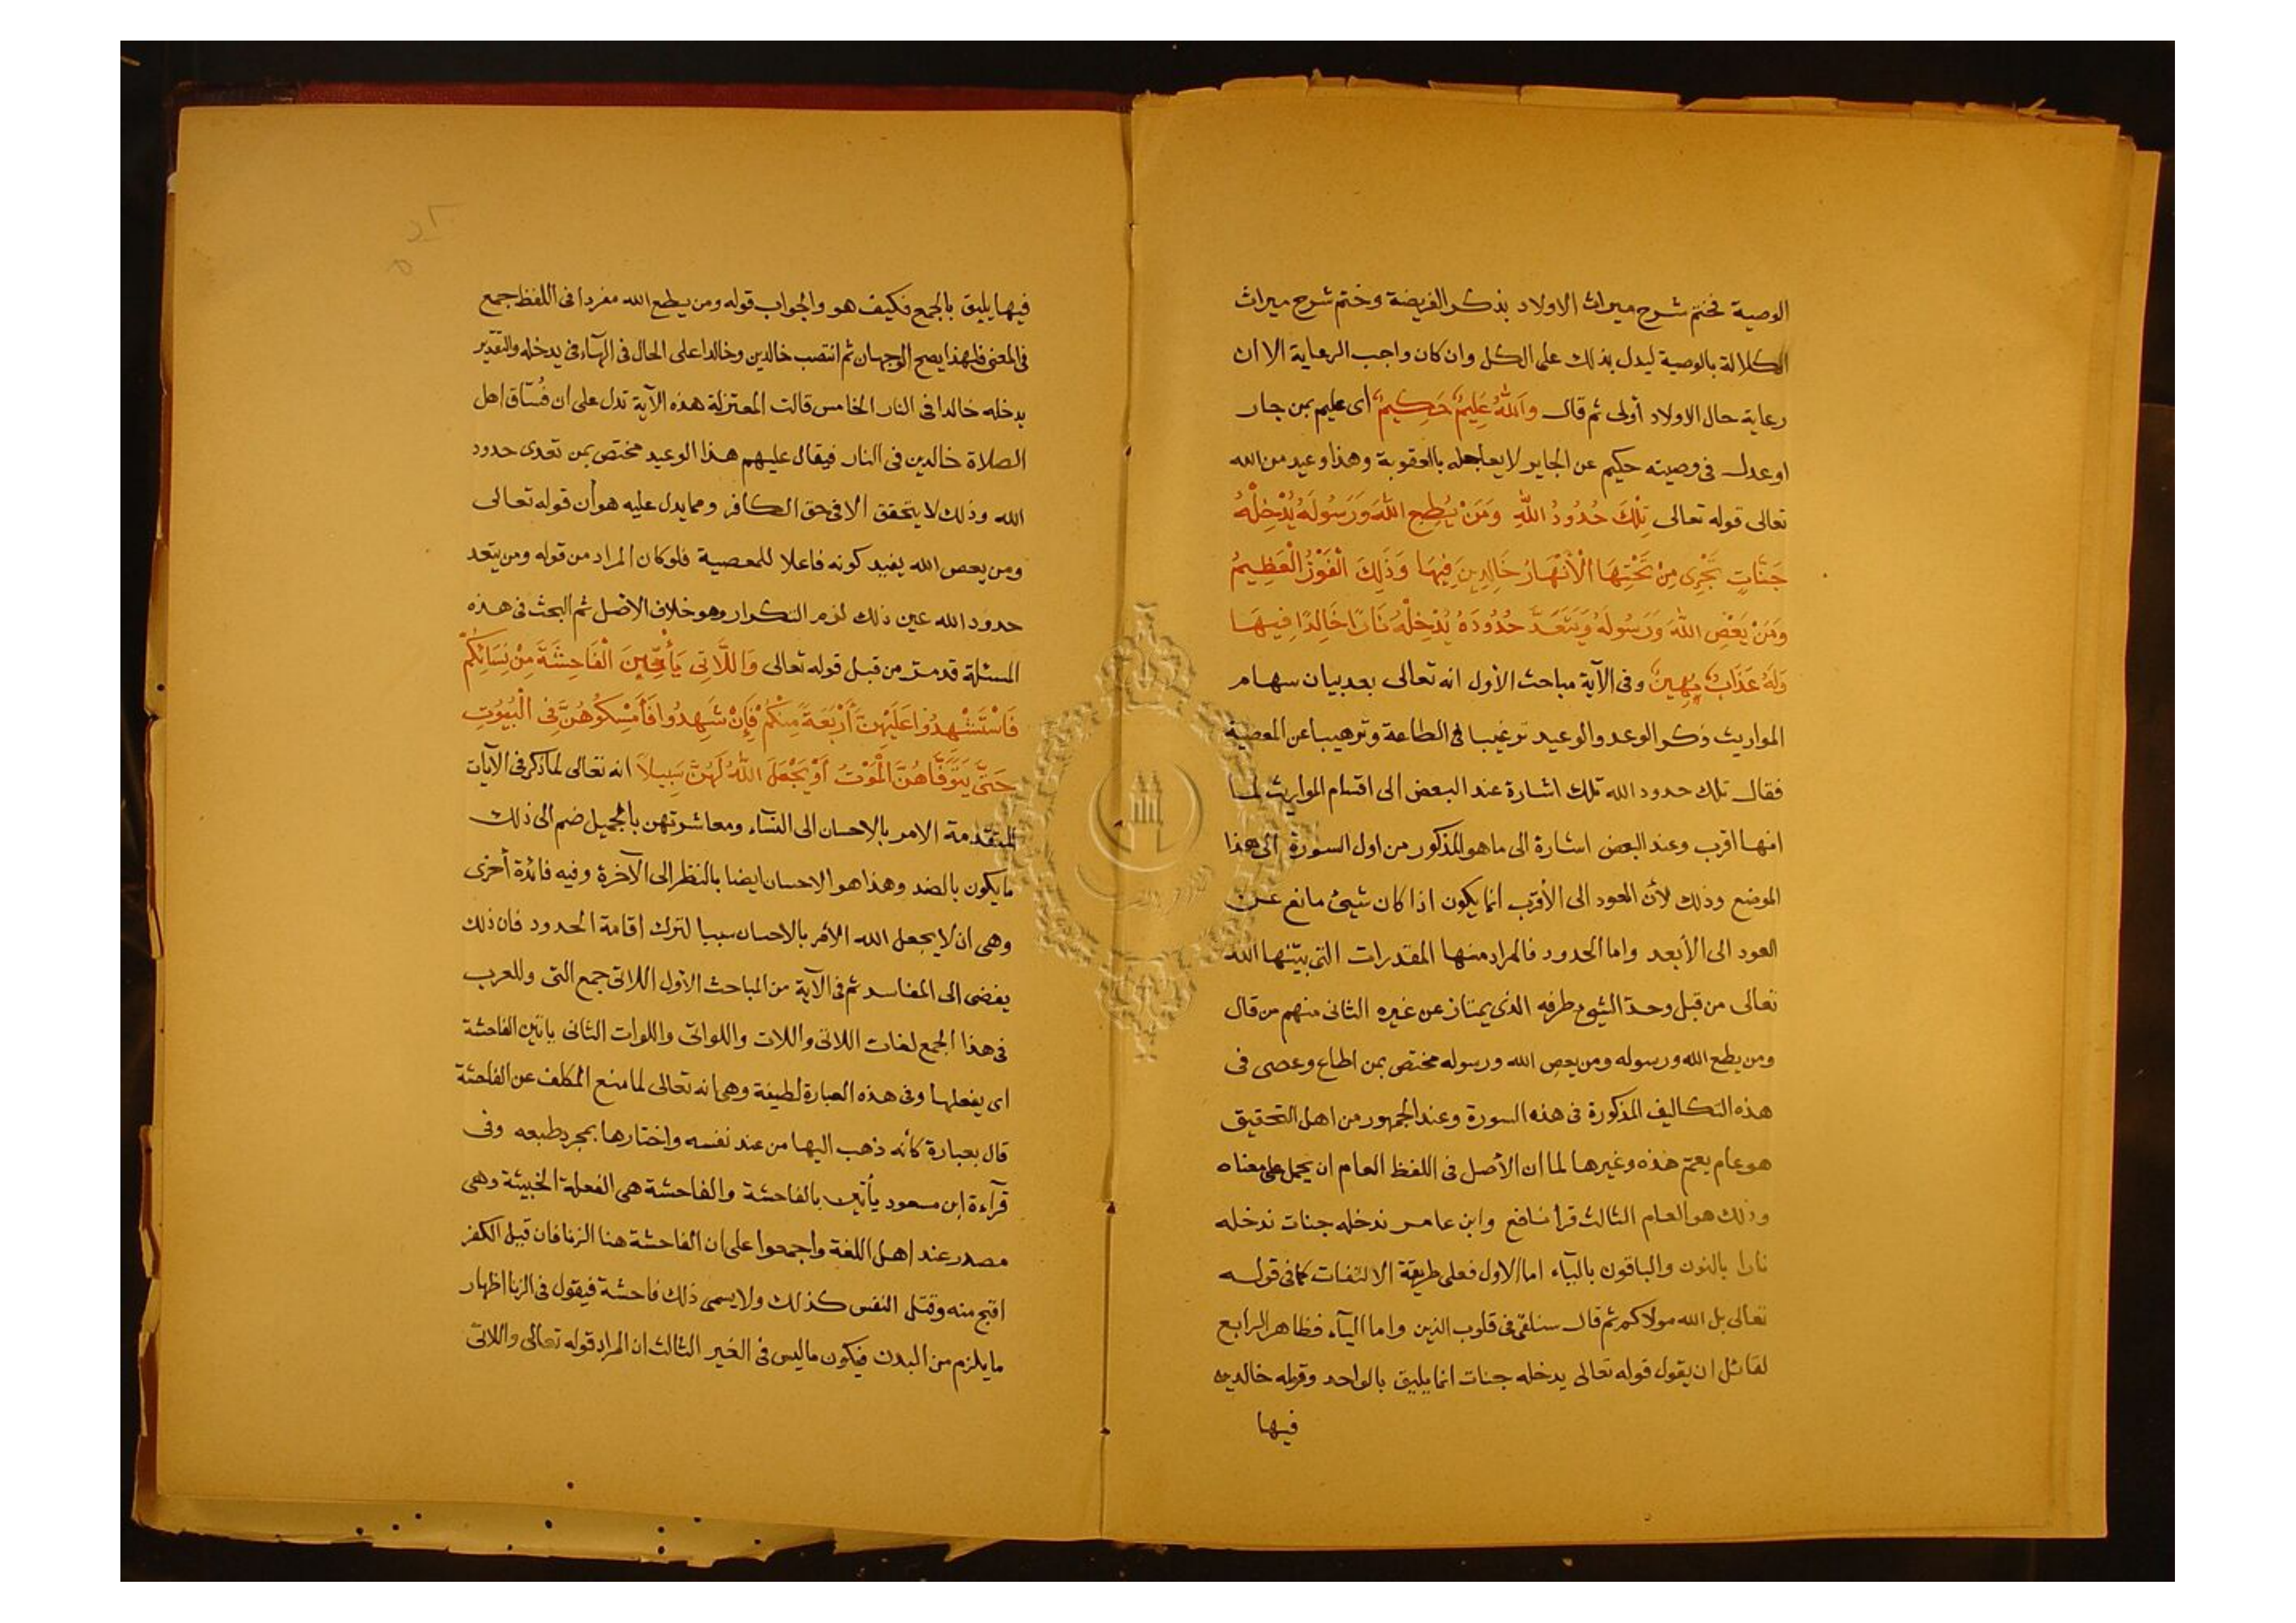 الوصية فختم شرح ميراث الاولاد بذكر الفريضة وختم شرح ميراث
الكلالة بالوصية ليدل بذلك على الكل وان كان واجب الرعاية الا ان
رعاية حال الاولاد أولى ثم قال وَاللَّهُ عَلِيمٌ حَكِيمٌ أى عليم بمن جار
او عدل فى وصيته حكيم عن الجاير لا يعاجله بالعقوبة وهذا وعيد من الله
تعالى قوله تعالى تِلْكَ حُدُودُ اللَّهِ وَمَنْ يُطِعِ اللَّهَ وَرَسُولَهُ يُدْخِلْهُ
جَنَّاتٍ تَجْرِى مِنْ تَحْتِهَا الْأَنْهَارُ خَالِدِينَ فِيهَا وَذَلِكَ الْفَوْزُ الْعَظِيمُ
وَمَنْ يَعْصِ اللَّهَ وَرَسُولَهُ وَيَتَعَدَّ حُدُودَهُ يُدْخِلْهُ نَارًا خَالِدًا فِيهَا
وَلَهُ عَذَابٌ مُهِينٌ وفى الآية مباحث الأول انه تعالى بعد بيان سهام
المواريث ذكر الوعد والوعيد ترغيبا فى الطاعة وترهيبا عن المعصية
فقال تلك حدود الله تلك اشارة عند البعض الى اقسام المواريث لما
انها اقرب وعند البعض اشارة الى ما هو المذكور من اول السورة الى هذا
الموضع وذلك لأن العود الى الأقرب انما يكون اذا كان شيئ مانع عن
العود الى الأبعد واما الحدود فالمراد منها المقدرات التى بيّنها الله
تعالى من قبل وحدّ الشيئ طرفه الذى يمتاز عن غيره الثانى منهم من قال
ومن يطع الله ورسوله ومن يعص الله ورسوله مختص بمن اطاع وعصى فى
هذه التكاليف المذكورة فى هذه السورة وعند الجمهور من اهل التحقيق
هو عام يعمّ هذه وغيرها لما ان الأصل فى اللفظ العام ان يحمل على معناه
وذلك هو العام الثالث قرا نافع وابن عامر ندخله جنات ندخله
نارا بالنون والباقون بالياء اما الاول فعلى طريقة الالتفات كما فى قوله
تعالى بل الله مولاكم ثم قال سنلقى فى قلوب الذين واما اليآء فظاهر الرابع
لقائل ان يقول قوله تعالى يدخله جنات انما يليق بالواحد وقوله خالدين
فيها
فيها يليق بالجمع فكيف هو والجواب قوله ومن يطع الله مفردا فى اللفظ جمع
فى المعنى فلهذا يصح الوجهان ثم انتصب خالدين وخالدا على الحال فى الهآء فى يدخله والتقدير
يدخله خالدا فى النار الخامس قالت المعتزلة هذه الآية تدل على ان فُسّاق اهل
الصلاة خالدين فى النار فيقال عليهم هذا الوعيد مختص بمن تعدى حدود
الله وذلك لا يتحقق الا فى حق الكافر ومما يدل عليه هو أن قوله تعالى
ومن يعص الله يفيد كونه فاعلا للمعصية فلو كان المراد من قوله ومن يتعد
حدود الله عين ذلك لزم التكرار وهو خلاف الاصل ثم البحث فى هذه
المسئلة قد مرّ من قبل قوله تعالى وَاللَّاتِى يَأْتِينَ الْفَاحِشَةَ مِنْ نِسَائِكُمْ
فَاسْتَشْهِدُوا عَلَيْهِنَّ أَرْبَعَةً مِنْكُمْ فَإِنْ شَهِدُوا فَأَمْسِكُوهُنَّ فِى الْبُيُوتِ
حَتَّى يَتَوَفَّاهُنَّ الْمَوْتُ أَوْ يَجْعَلَ اللَّهُ لَهُنَّ سَبِيلاً انه تعالى لما ذكر فى الآيات
المتقدمة الامر بالاحسان الى النسآء ومعاشرتهن بالجميل ضم الى ذلك
ما يكون بالضد وهذا هو الاحسان ايضا بالنظر الى الآخرة وفيه فائدة أخرى
وهى ان لا يجعل الله الأمر بالاحسان سببا لترك اقامة الحدود فان ذلك
يفضى الى المفاسد ثم فى الآية من المباحث الأول اللاتى جمع التى وللعرب
فى هذا الجمع لغات اللاتى واللات واللواتى واللوات الثانى ياتين الفاحشة
اى يفعلها وفى هذه العبارة لطيفة وهى انه تعالى لما منع المكلف عن الفاحشة
قال بعبارة كأنه ذهب اليها من عند نفسه واختارها بمجرد طبعه وفى
قرآءة ابن مسعود يأتين بالفاحشة والفاحشة هى الفعلة الخبيثة وهى
مصدر عند اهل اللغة واجمعوا على ان الفاحشة هنا الزنا فان قيل الكفر
اقبح منه وقتل النفس كذلك ولا يسمى ذلك فاحشة فيقول فى الزنا اظهار
ما يلزم من البدن فيكون ما ليس فى الغير الثالث ان المراد قوله تعالى واللاتى